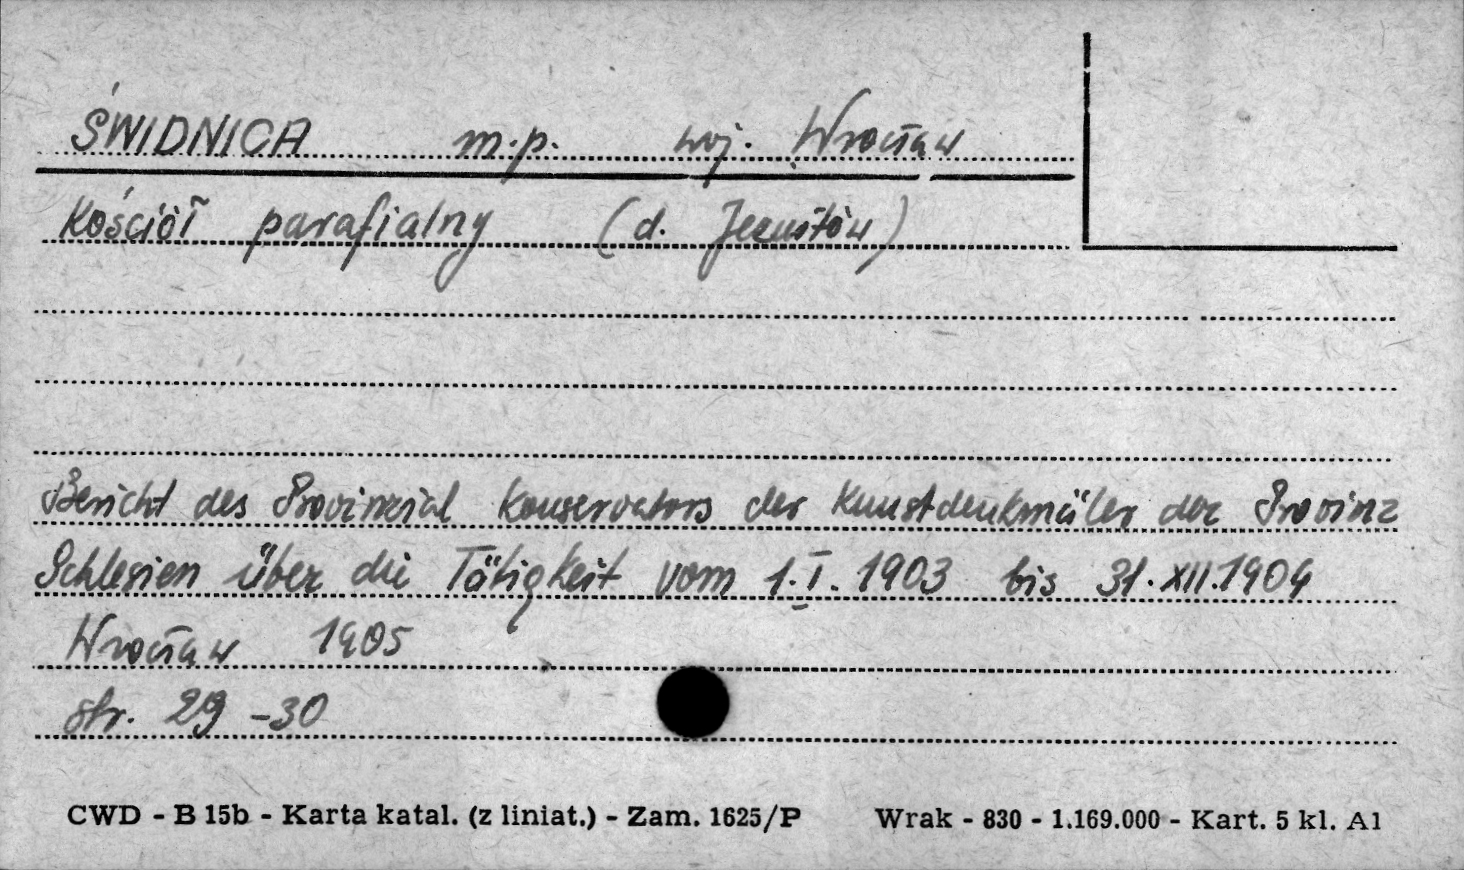 ŚWIDNICA m.p. woj. Wrocław
Kościół parafialny (d. Jezuitów)
Bericht des Provinzial Konservators der Kunstdenkmäler der Provinz
Schlesien über die Tätigkeit vom 1.I. 1903 bis 31.XII.1904
Wrocław 1905
str. 29-30
CWD - B 15b - Karta katal. (z liniat.) - Zam. 1625/P Wrak - 830 - 1.169.000 - Kart. 5 kl. A1